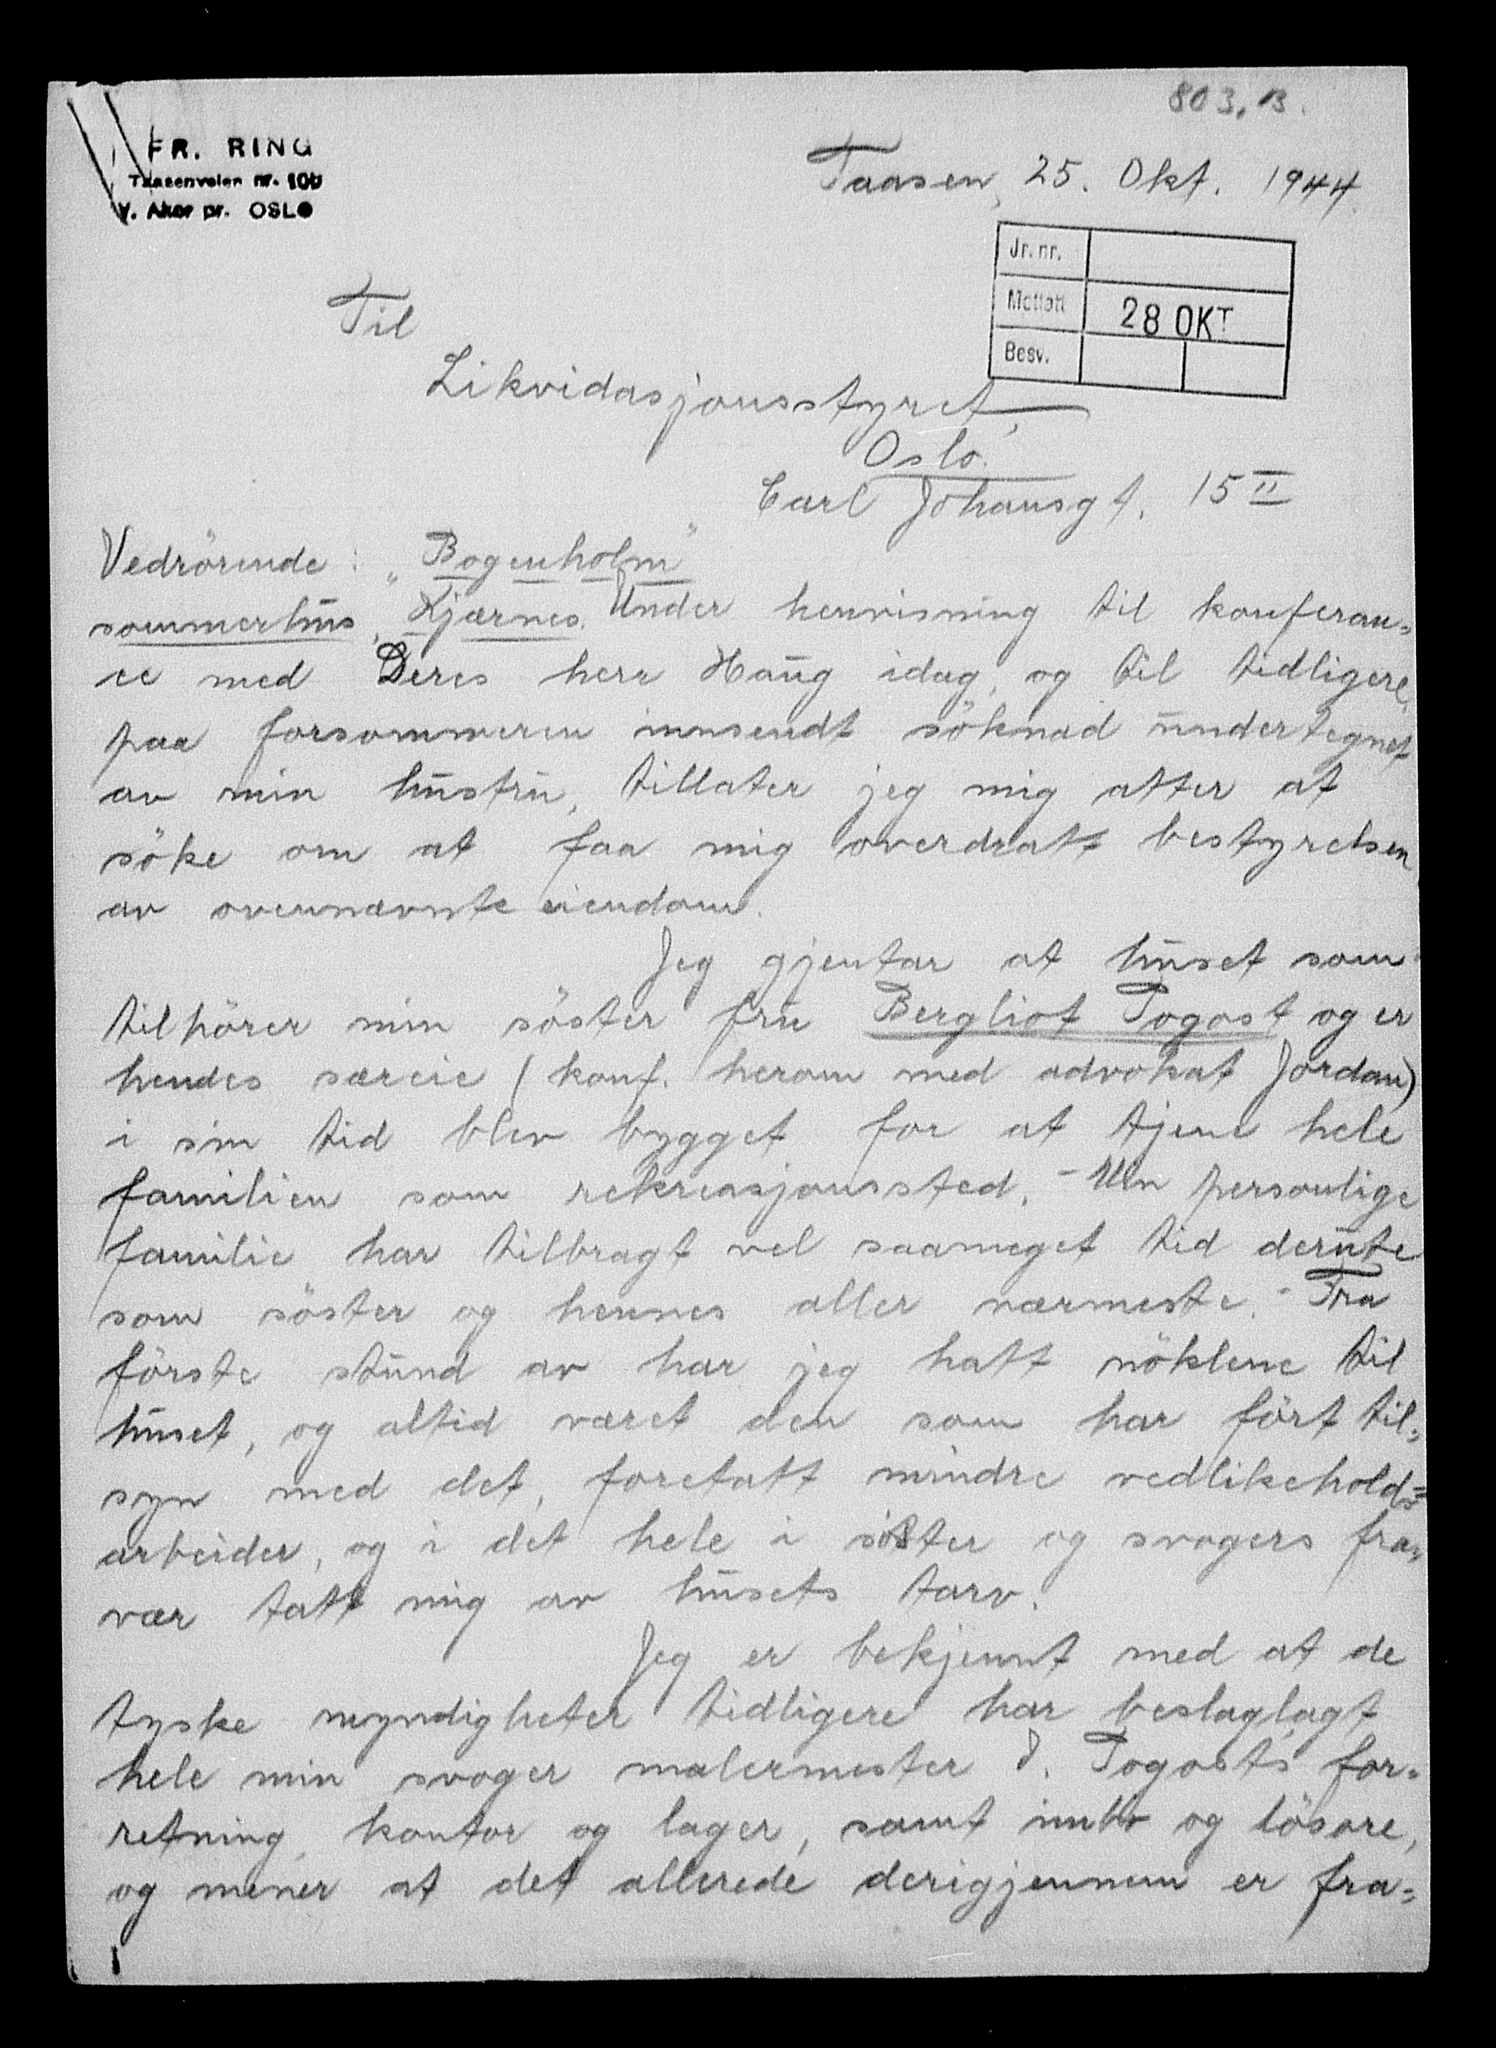 803, B.
FR. RING
Taasenveien nr. 100
V. Aker pr. OSLO
Taasen, 25. Okt. 1944.
Jr. nr.
Mottatt 28 OKT
Besv.
Til
Likvidasjonsstyret,
Oslo.
Carl Johansgt. 15 II
Vedrörende: "Bogenholm"
sommerhus, Kjærnes. Under henvisning til konferan=
ce med Deres herr Haug idag, og til tidligere,
paa forsommeren innsendt söknad undertegnet
av min hustru, tillater jeg mig atter at
söke om at faa mig overdratt bestyrelsen
av ovennævnte eiendom.
Jeg gjentar at huset som
tilhörer min söster fru Bergliot Pogost og er
hendes særeie (konf. herom med advokat Jordan)
i sin tid blev bygget for at tjene hele
familien som rekreasjonssted. - Min personlige
familie har tilbragt vel saameget tid derute
som söster og hennes aller nærmeste. - Fra
förste stund av har jeg hatt nöklene til
huset, og altid været den som har fört til=
syn med det, foretatt mindre vedlikeholds=
arbeider, og i det hele i söster og svogers fra=
vær tatt mig av husets tarv.
Jeg er bekjennt med at de
tyske myndigheter tidligere har beslaglagt
hele min svoger malermester J. Pogost's for=
retning, kontor og lager, samt innbo og lösöre,
og mener at det allerede derigjennem er fra=